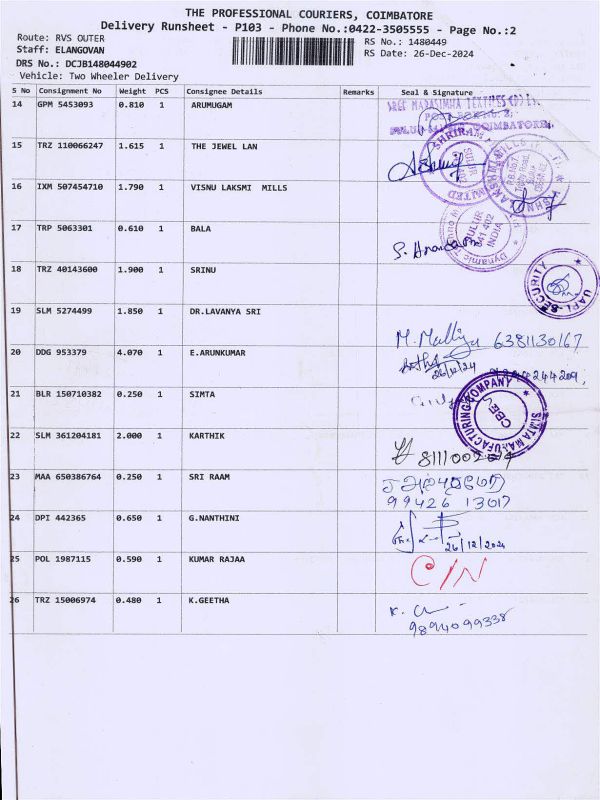 THE PROFESSIONAL COURIERS, COIMBATORE
Delivery Runsheet - P103 - Phone No.:0422-3505555 - Page No.:2
Route: RVS OUTER
RS No.: 1480449
Staff: ELANGOVAN
RS Date: 26-Dec-2024
DRS No.: DCJB148044902
Vehicle: Two Wheeler Delivery
S No Consignment No Weight PCS Consignee Details Remarks Seal & Signature
14 GPM 5453093 0.810 1 ARUMUGAM
15 TRZ 110066247 1.615 1 THE JEWEL LAN
16 IXM 507454710 1.790 1 VISNU LAKSMI MILLS
17 TRP 5063301 0.610 1 BALA
18 TRZ 40143600 1.900 1 SRINU
UAPL-SECURITY
19 SLM 5274499 1.850 1 DR.LAVANYA SRI
M. Malliga 6381130167
20 DDG 953379 4.070 1 E.ARUNKUMAR
26/12/24
21 BLR 150710382 0.250 1 SIMTA
SIMTA MANUFACTURING COMPANY
CBE
22 SLM 361204181 2.000 1 KARTHIK
23 MAA 650386764 0.250 1 SRI RAAM
99426 13017
24 DPI 442365 0.650 1 G.NANTHINI
26/12/2024
25 POL 1987115 0.590 1 KUMAR RAJAA
C/N
26 TRZ 15006974 0.480 1 K.GEETHA
9894099338